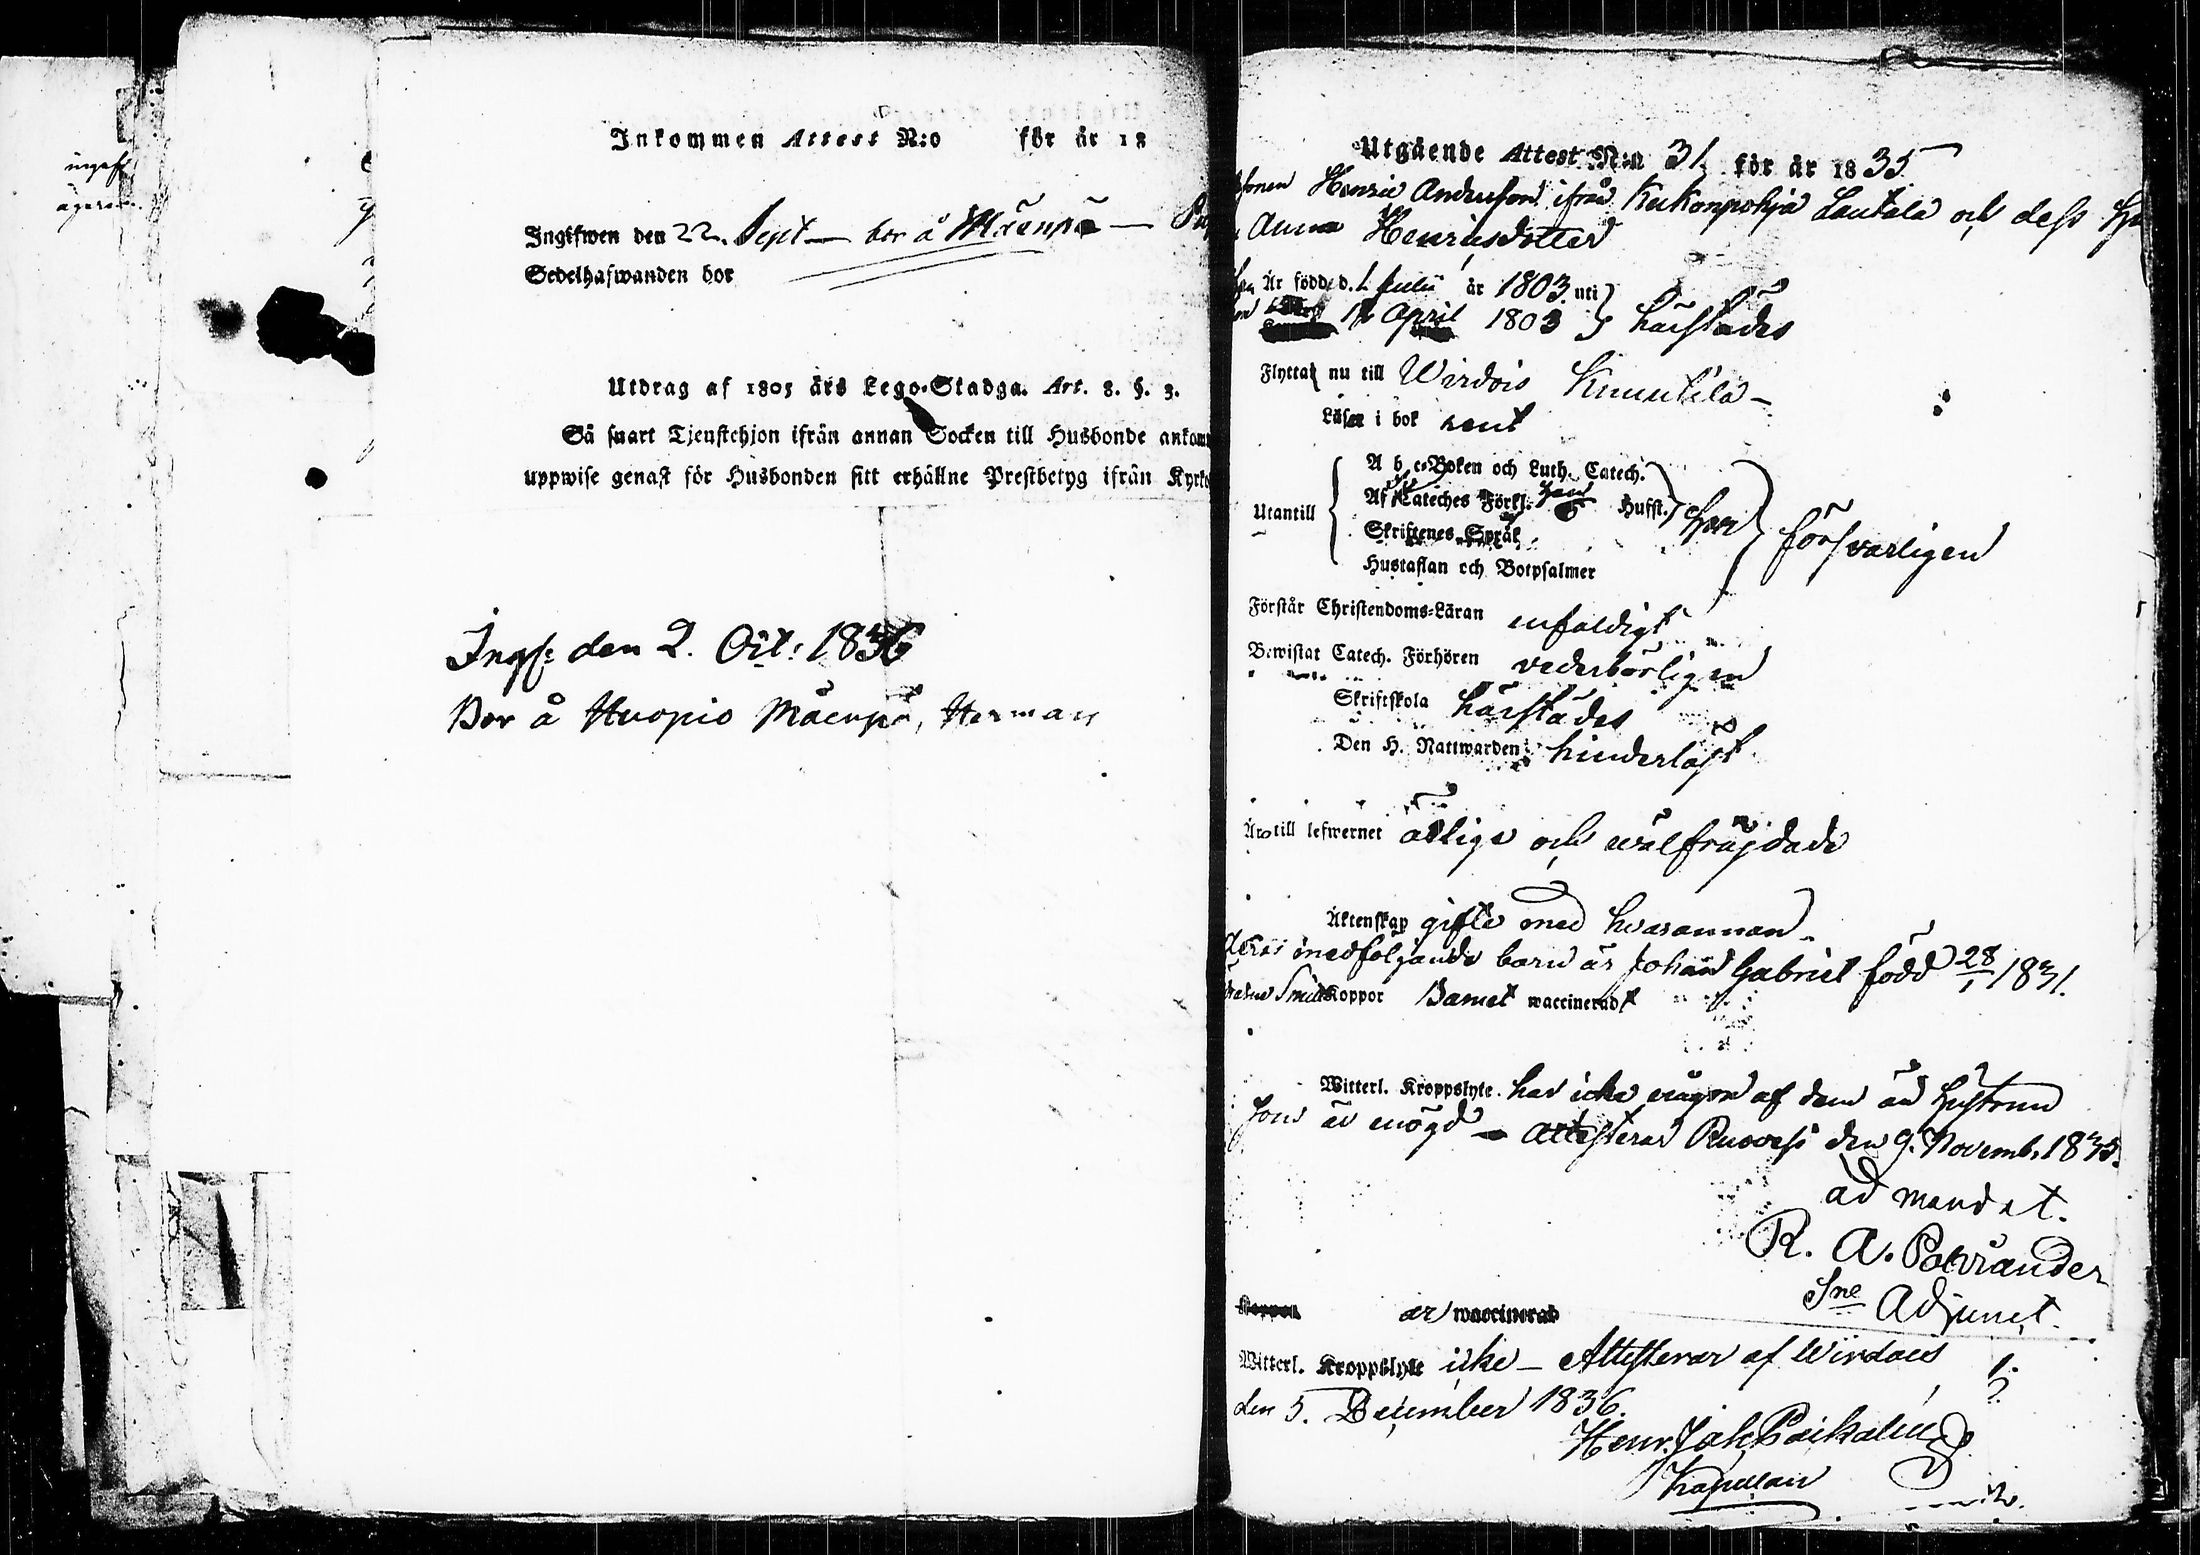 ingefn
Inkommen Attest N:o för år 18
Ingifwen den 22. Sept — bor å Mäenpä —
Sedelhafwanden bor
Utdrag af 1805 års Lego-Stadga. Art. 8. §. 3.
Så snart Tjenstehjon ifrån annan Socken till Husbonde ankom
uppwise genast för Husbonden sitt erhållne Prestbetyg ifrån Kyrko
Ingf: den 2. Oct: 1836
Bor å Kuopio Mäenpä, Herman
Utgående Attest N:o 31. för år 1835
Henric Andersson ifrån Kukonpohja Lautala och dess
Anna Henricsdotter
Är född d. 1 Julii år 1803 uti
April 1803 härstädes
Flytta nu till Wirdois Kimutila —
Läser i bok rent
A b c-Boken och Luth. Catech.
Af Cateches Förkl. Husst.
Utantill försvarligen
Skriftenes Språk
Hustaflan och Botpsalmer
Förstår Christendoms-Läran enfaldigt
Bewistat Catech. Förhören vederbörligen
Skriftskola härstädes
Den H. Nattwarden hinderlöst
Äro till lefwernet ärlige och wälfräjdade
Äktenskap gifte med hvarannan.
deras medföljande barn är Johan Gabriel född 28/1 1831.
Smittkoppor Barnet waccineradt
Witterl. Kroppslyte har icke någon af dem än hustrun
som är enögd — Attesterar Ruovesi den 9. Novemb. 1835.
ad mandat.
R. A. Polviander
Sne Adjunct.
Koppor är waccinerad
Witterl. Kroppslyte icke — Attesterar af Wirdois
den 5. December 1836.
Henr. Joh.
Kapellan